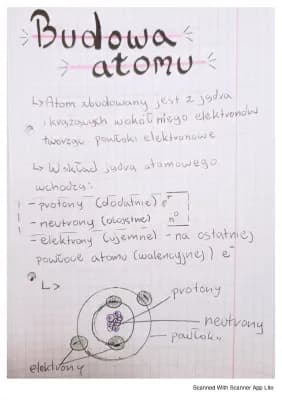 Budowa
atomu
↳ Atom zbudowany jest z jądra
i krążących wokół niego elektronów
tworząc powłoki elektronowe
↳ W skład jądra atomowego
wchodzą:
- protony (dodatnie) p⁺
- neutrony (obojętne) n⁰
- elektrony (ujemne) - na ostatniej
powłoce atomu (walencyjnej) e⁻
↳
protony
neutrony
powłoki
elektrony
Scanned With Scanner App Lite